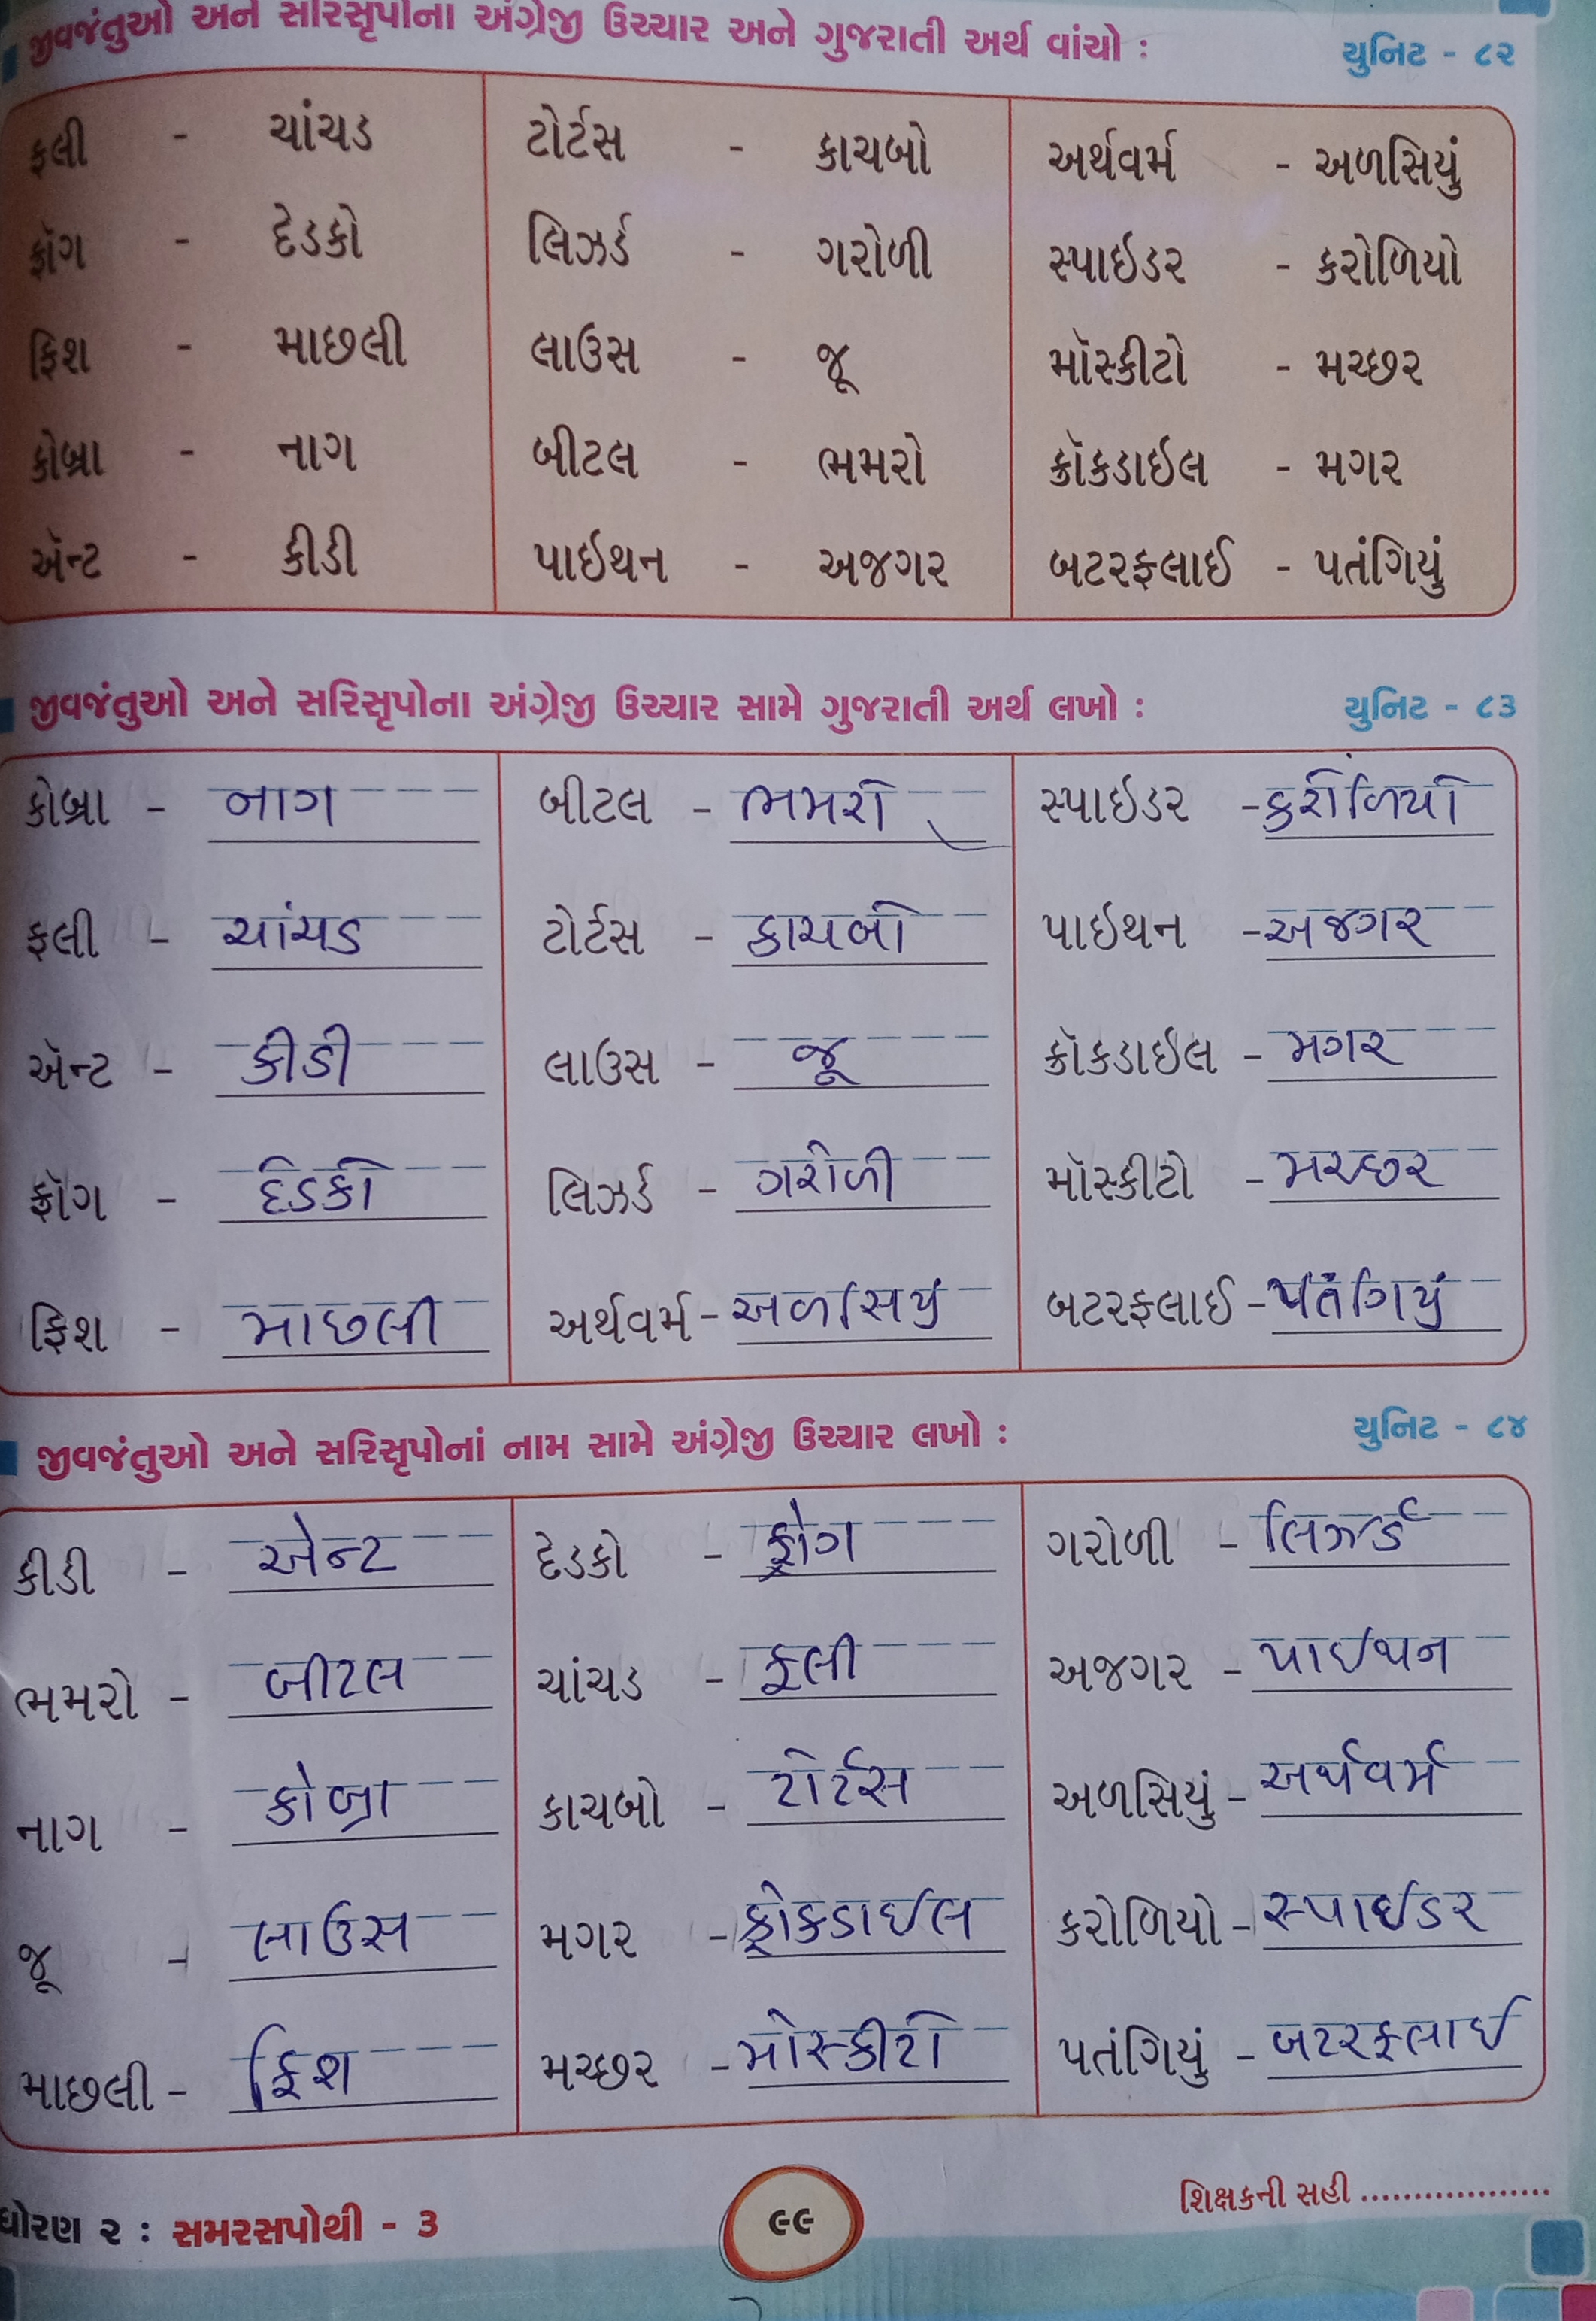 જીવજંતુઓ અને સરિસૃપોના અંગ્રેજી ઉચ્ચાર અને ગુજરાતી અર્થ વાંચો : યુનિટ - ૮૨
ફલી - ચાંચડ ટોર્ટસ - કાચબો અર્થવર્મ - અળસિયું
ફ્રૉગ - દેડકો લિઝર્ડ - ગરોળી સ્પાઇડર - કરોળિયો
ફિશ - માછલી લાઉસ - જૂ મૉસ્કીટો - મચ્છર
કોબ્રા - નાગ બીટલ - ભમરો ક્રૉકડાઇલ - મગર
ઍન્ટ - કીડી પાઇથન - અજગર બટરફ્લાઈ - પતંગિયું
જીવજંતુઓ અને સરિસૃપોના અંગ્રેજી ઉચ્ચાર સામે ગુજરાતી અર્થ લખો : યુનિટ - ૮૩
કોબ્રા - નાગ બીટલ - ભમરો સ્પાઇડર - કરોળિયો
ફલી - ચાંચડ ટોર્ટસ - કાચબો પાઇથન - અજગર
ઍન્ટ - કીડી લાઉસ - જૂ ક્રૉકડાઇલ - મગર
ફ્રૉગ - દેડકો લિઝર્ડ - ગરોળી મૉસ્કીટો - મચ્છર
ફિશ - માછલી અર્થવર્મ - અળસિયું બટરફ્લાઈ - પતંગિયું
જીવજંતુઓ અને સરિસૃપોનાં નામ સામે અંગ્રેજી ઉચ્ચાર લખો : યુનિટ - ૮૪
કીડી - એન્ટ દેડકો - ફ્રોગ ગરોળી - લિઝર્ડ
ભમરો - બીટલ ચાંચડ - ફલી અજગર - પાઈથન
નાગ - કોબ્રા કાચબો - ટોર્ટસ અળસિયું - અર્થવર્મ
જૂ - લાઉસ મગર - ક્રોકડાઈલ કરોળિયો - સ્પાઈડર
માછલી - ફિશ મચ્છર - મોસ્કીટો પતંગિયું - બટરફલાઈ
ધોરણ ૨ : સમરસપોથી - 3 ૯૯ શિક્ષકની સહી ..................